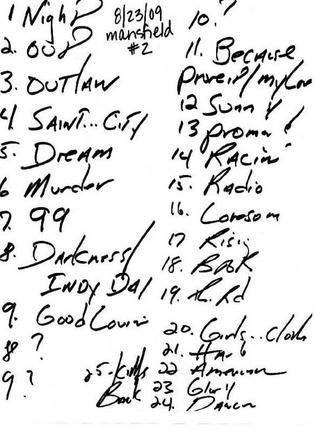 1 Night
8/23/09
mansfield
#2
2. OUT
3. OUTLAW
4. SAINT...City
5. Dream
6 Murder
7. 99
8. Darkness/
Indy Day
9. Good Lovin
8 ?
9 ?
10. ?
11. Because
Prove it/my Love
12 Sunny
13 Promo !
14 Racin
15. Radio
16. Lonesom
17 Rising
18. Badk
19. Th. Rd
20. Girls..cloth
21. Hard
22 American
23 Glory
24. Dancn
25. Kitty
Back